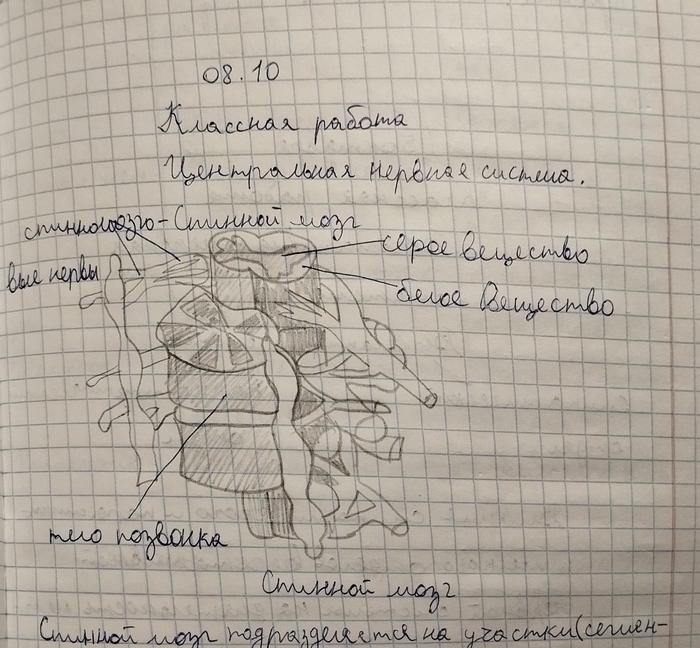 08.10
Классная работа
Центральная нервная система.
Спинной мозг
спинномозго-
вые нервы
серое вещество
белое вещество
тело позвонка
Спинной мозг
Спинной мозг подразделяется на участки(сегмен-